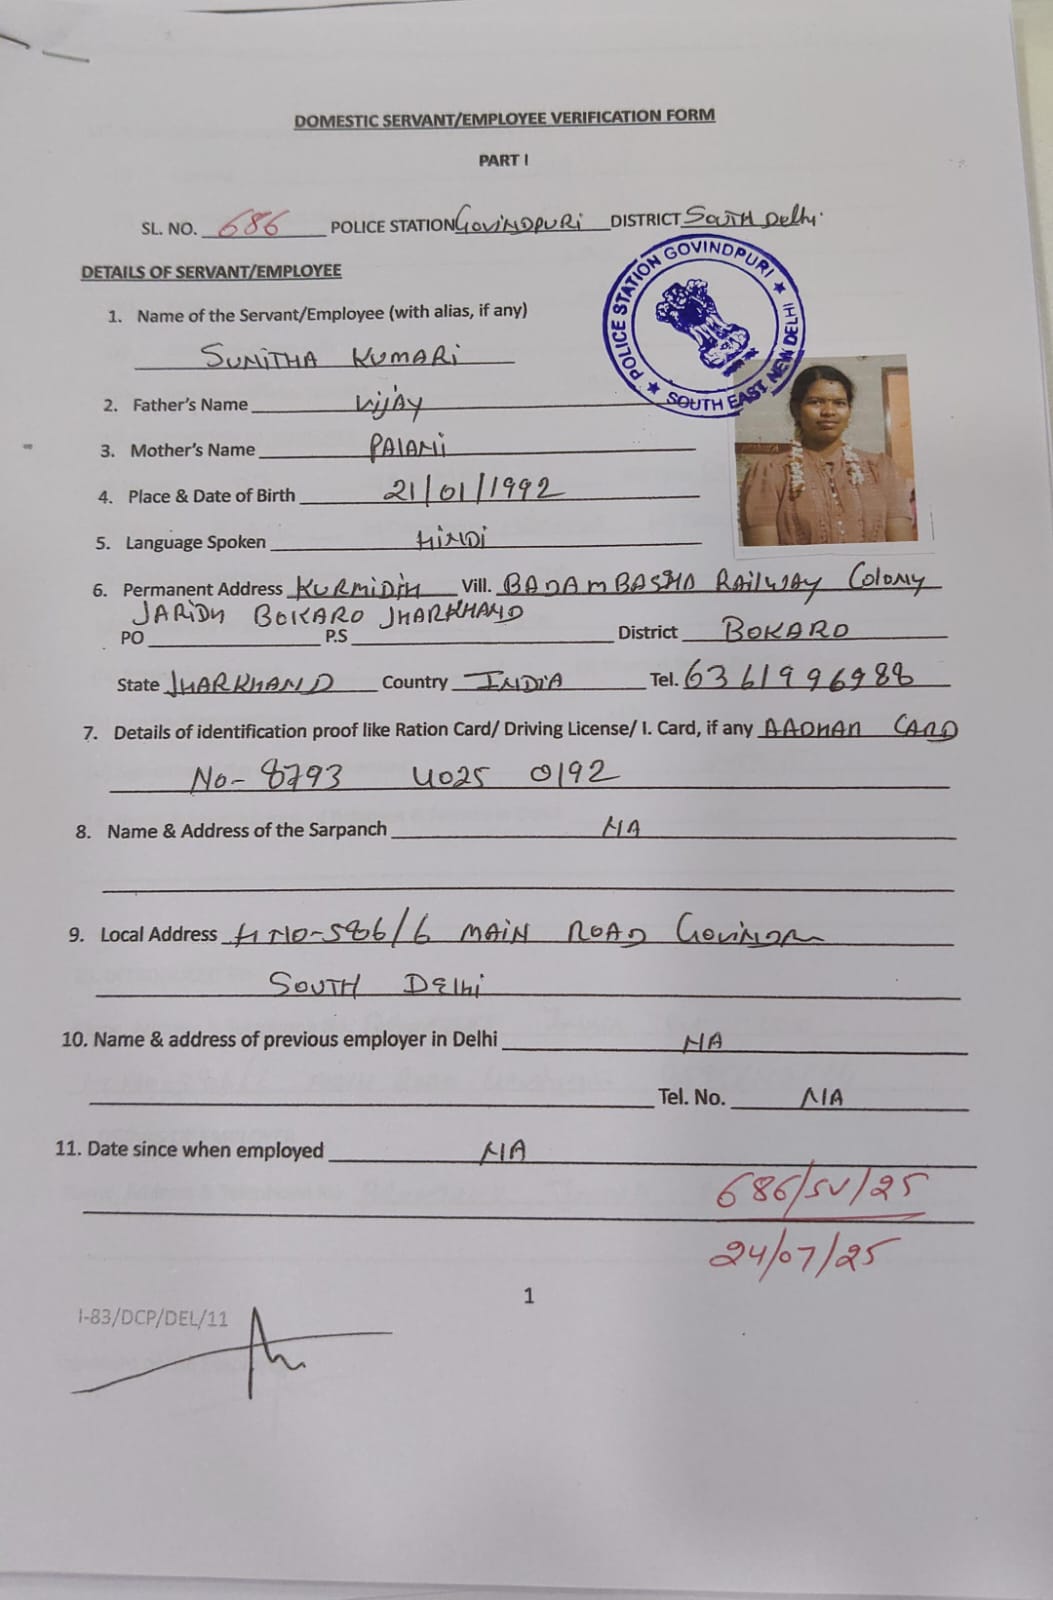 DOMESTIC SERVANT/EMPLOYEE VERIFICATION FORM
PART I
SL. NO. 686 POLICE STATION GOVINDPURI DISTRICT SOUTH Delhi.
DETAILS OF SERVANT/EMPLOYEE
POLICE STATION GOVINDPURI ★ SOUTH EAST NEW DELHI ★
1. Name of the Servant/Employee (with alias, if any)
SUNITHA KUMARI
2. Father's Name VIJAY
3. Mother's Name PALANI
4. Place & Date of Birth 21/01/1992
5. Language Spoken HINDI
6. Permanent Address KURMIDIH Vill. BADAMBASHA RAILWAY COLONY
JARIDH BOKARO JHARKHAND
PO P.S District BOKARO
State JHARKHAND Country INDIA Tel. 6361996988
7. Details of identification proof like Ration Card/ Driving License/ I. Card, if any AADHAR CARD
No- 8793 4025 0192
8. Name & Address of the Sarpanch NA
9. Local Address H NO-586/6 MAIN ROAD
SOUTH DElhi
10. Name & address of previous employer in Delhi NA
Tel. No. NIA
11. Date since when employed NIA
686/SV/25
24/07/25
1
I-83/DCP/DEL/11